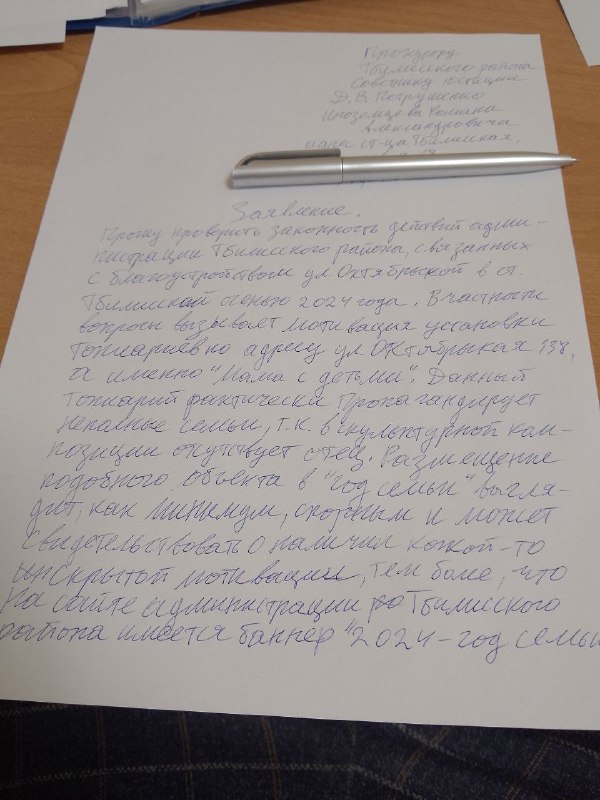 Прокурору
Тбилисского района
Советнику юстиции
Д.В. Петрушенко
Иноземцева Романа
Александровича
адрес ст-ца Тбилисская,
Заявление.
Прошу проверить законность действий адми-
нистрации Тбилисского района, связанных
с благоустройством ул. Октябрьской в ст.
Тбилисской осенью 2024 года. В частности
вопросы вызывает мотивация установки
топиариев по адресу ул. Октябрьская 138,
а именно "Мама с детьми". Данный
топиарий фактически пропагандирует
неполные семьи, т.к. в скульптурной ком-
позиции отсутствует отец. Размещение
подобного объекта в "год семьи" выгля-
дит, как минимум, спорным и может
свидетельствовать о наличии какой-то
скрытой мотивации, тем боле, что
на сайте администрации Тбилисского
района имеется баннер "2024 - год семьи